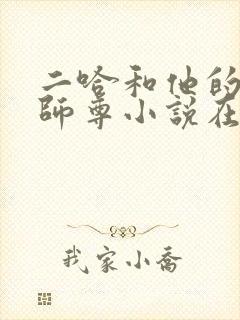 二哈和他的
師尊小說在
我家小喬